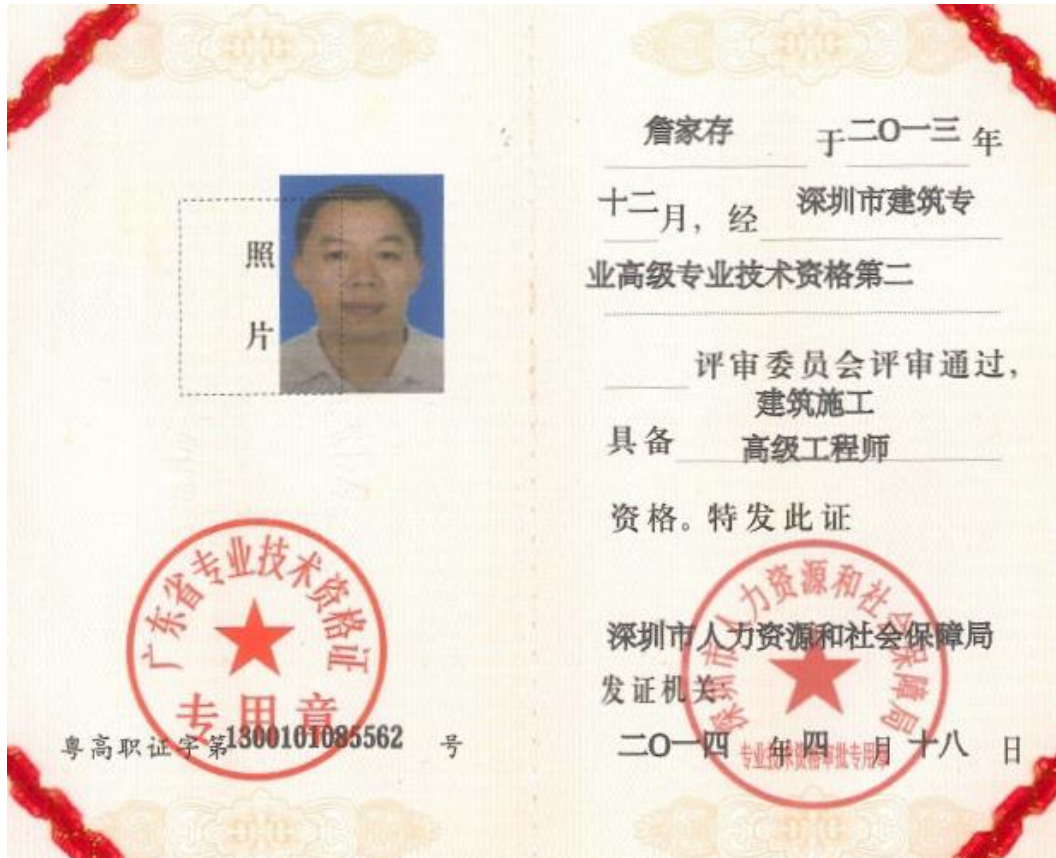 照
片
广东省专业技术资格证
专用章
粤高职证字第1300101085562 号
詹家存 于二〇一三年
十二月，经 深圳市建筑专
业高级专业技术资格第二
评审委员会评审通过，
建筑施工
具备 高级工程师
资格。特发此证
深圳市人力资源和社会保障局
深圳市人力资源和社会保障局
发证机关：
二〇一四 年 四 月 十八 日
专业技术资格审批专用章